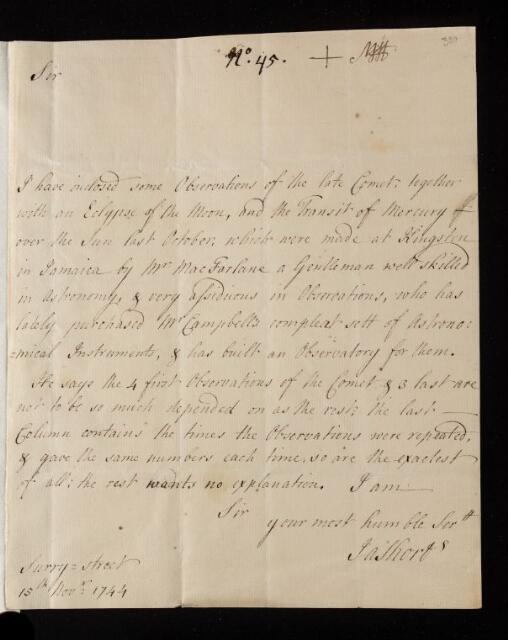 No. 45. +
Sir
I have inclosed some Observations of the late Comet; together
with an Eclypse of the Moon, and the Transit of Mercury
over the Sun last October; which were made at Kingston
in Jamaica by Mr MacFarlane a Gentleman well skilled
in Astronomy, & very assiduous in Observations, who has
lately purchased Mr Campbell's compleat sett of Astrono=
=mical Instruments, & has built an Observatory for them.
He says the 4 first Observations of the Comet & 3 last are
not to be so much depended on as the rest: the last
Column contains the times the Observations were repeated,
& gave the same numbers each time, so are the exactest
of all: the rest wants no explanation. I am
Sir
your most humble Sertt
Ja: Short
Surry=street
15th Novr. 1744